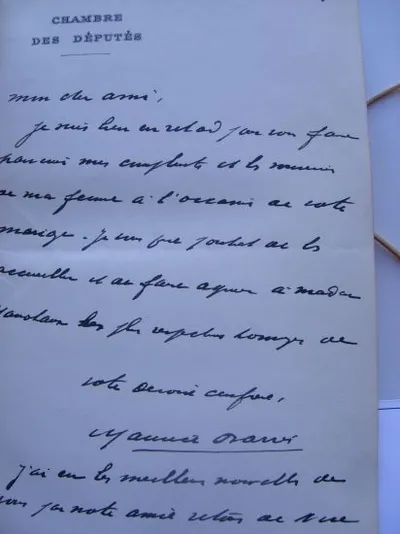 CHAMBRE
DES DÉPUTÉS
mon cher ami,
je suis bien en retard pour vous faire
mes compliments et les
de ma femme à l'occasion de votre
mariage. Je vous prie de les
accueillir et de faire agréer à madame
les plus respectueux hommages de
votre dévoué confrère,
Maurice Barrès
j'ai eu les meilleures nouvelles de
vous par notre amie de